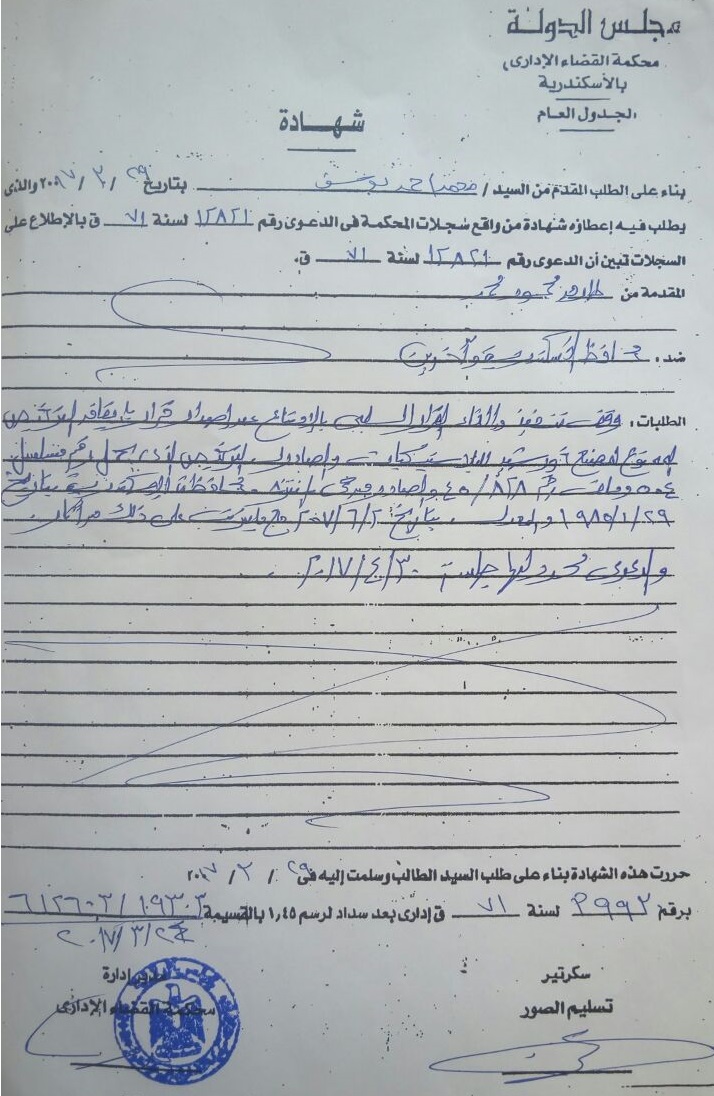 مجلس الدولة
محكمة القضاء الإدارى
بالأسكندرية
الجدول العام
شهادة
بناء على الطلب المقدم من السيد / محمد احمد يوسف بتاريخ ٢٩ / ٣ / ٢٠١٧ والذى
يطلب فيه إعطاؤه شهادة من واقع سجلات المحكمة فى الدعوى رقم ١٢٨٢١ لسنة ٧١ ق بالإطلاع على
السجلات تبين أن الدعوى رقم ١٢٨٢١ لسنة ٧١ ق.
المقدمة من طارق محمود محمد
ضد : محافظ الاسكندرية وآخرين
الطلبات : وقف تنفيذ والغاء القرار السلبى بالامتناع عن اصدار قرار بايقاف الترخيص
الترخيص الذى يحمل رقم مسلسل
٥٠٤ وملف رقم ٨٢٨ / ٤٥ محافظة الاسكندرية بتاريخ
٢٩ / ١ / ١٩٨٥ والمعدل بتاريخ ٢ / ٦ / ٢٠٠٧ مع مايترتب على ذلك من آثار.
والدعوى محدد لها جلسة ٣٠ / ٤ / ٢٠١٧.
حررت هذه الشهادة بناء على طلب السيد الطالب وسلمت إليه فى ٢٩ / ٣ / ٢٠١٧
برقم ٣٩٩٢ لسنة ٧١ ق إدارى بعد سداد لرسم ١,٤٥ بالقسيمة
سكرتير
تسليم الصور
مدير إدارة
محكمة القضاء الإدارى